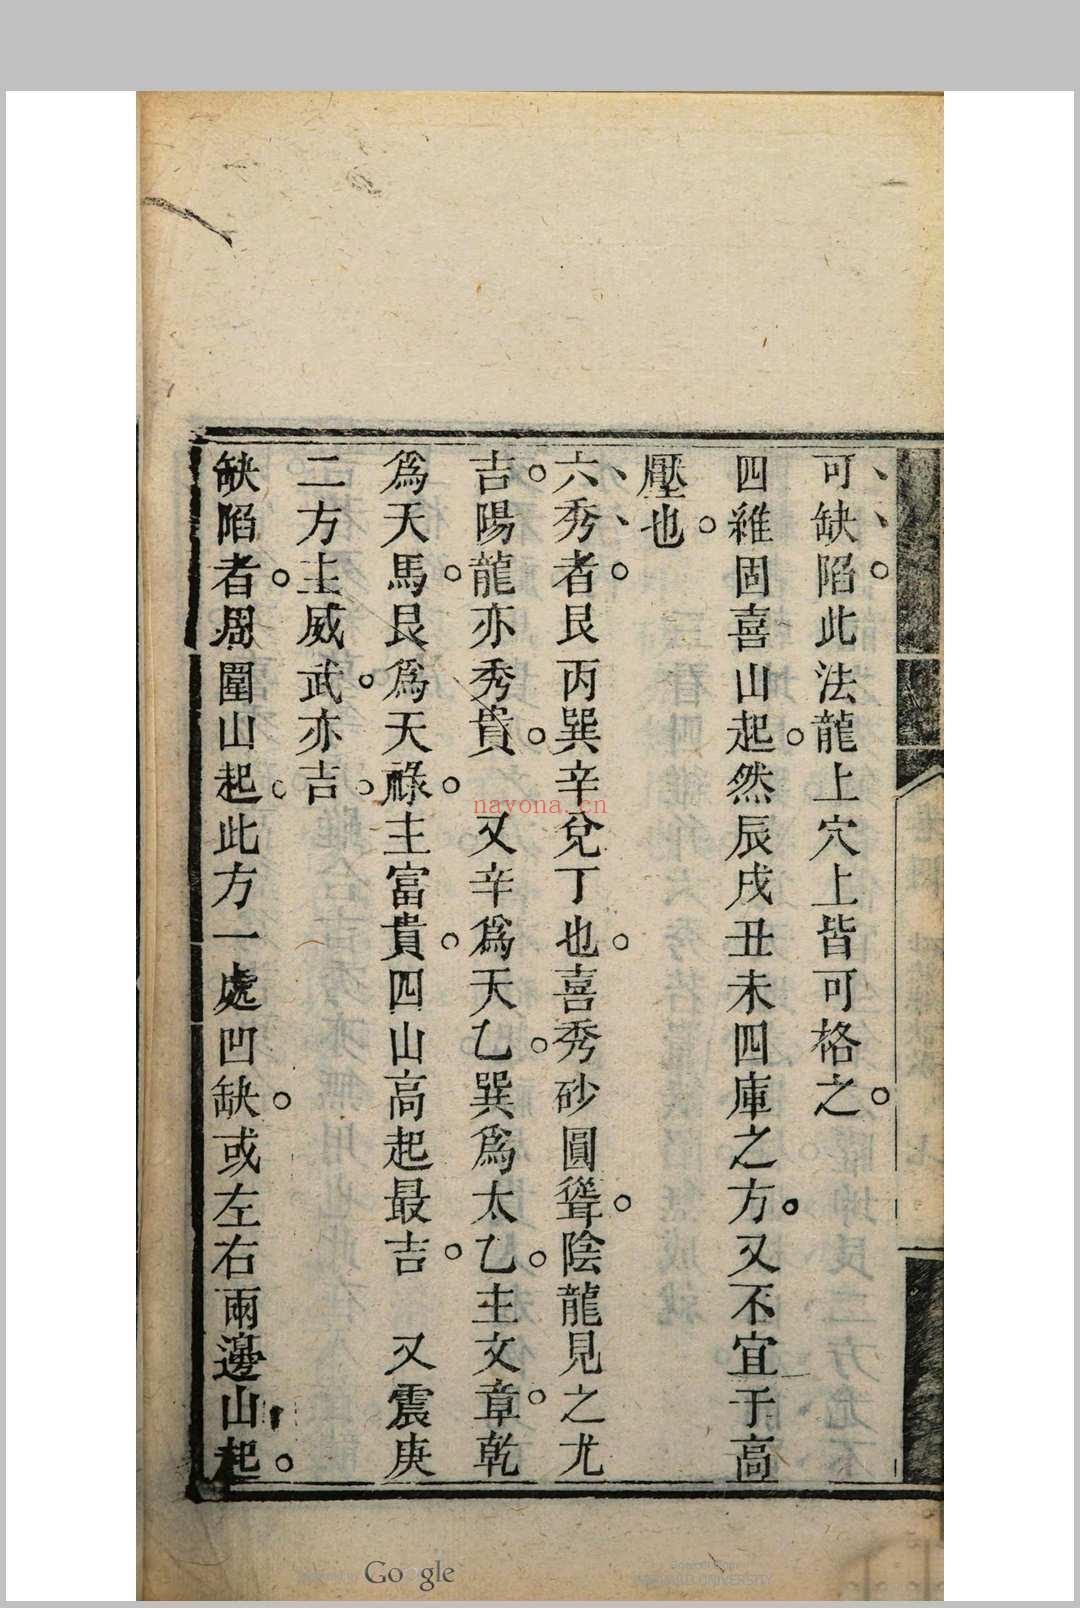 可缺陷此法龍上穴上皆可格之
四維固喜山起然辰戌丑未四庫之方又不宜于高
壓也
六秀者艮丙巽辛兌丁也喜秀砂圓聳陰龍見之尤
吉陽龍亦秀貴　又辛爲天乙巽爲太乙主文章乾
爲天馬艮爲天祿主富貴四山高起最吉　又震庚
二方主威武亦吉
缺陷者周圍山起此方一處凹缺或左右兩邊山起
nayona.cn
Google